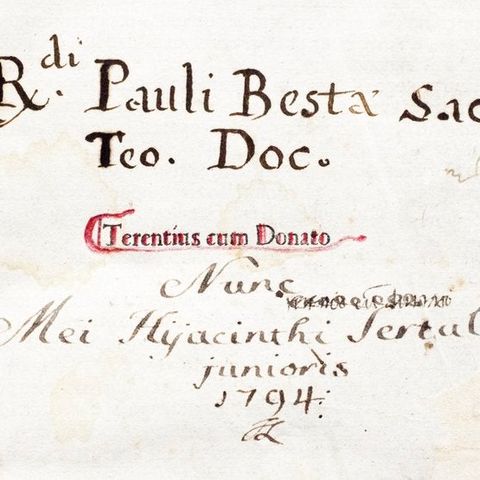 R.di Pauli Bestæ Sac
Teo. Doc.
Terentius cum Donato
Nunc
Mei Hyjacinthi Tertul
junioris
1794.